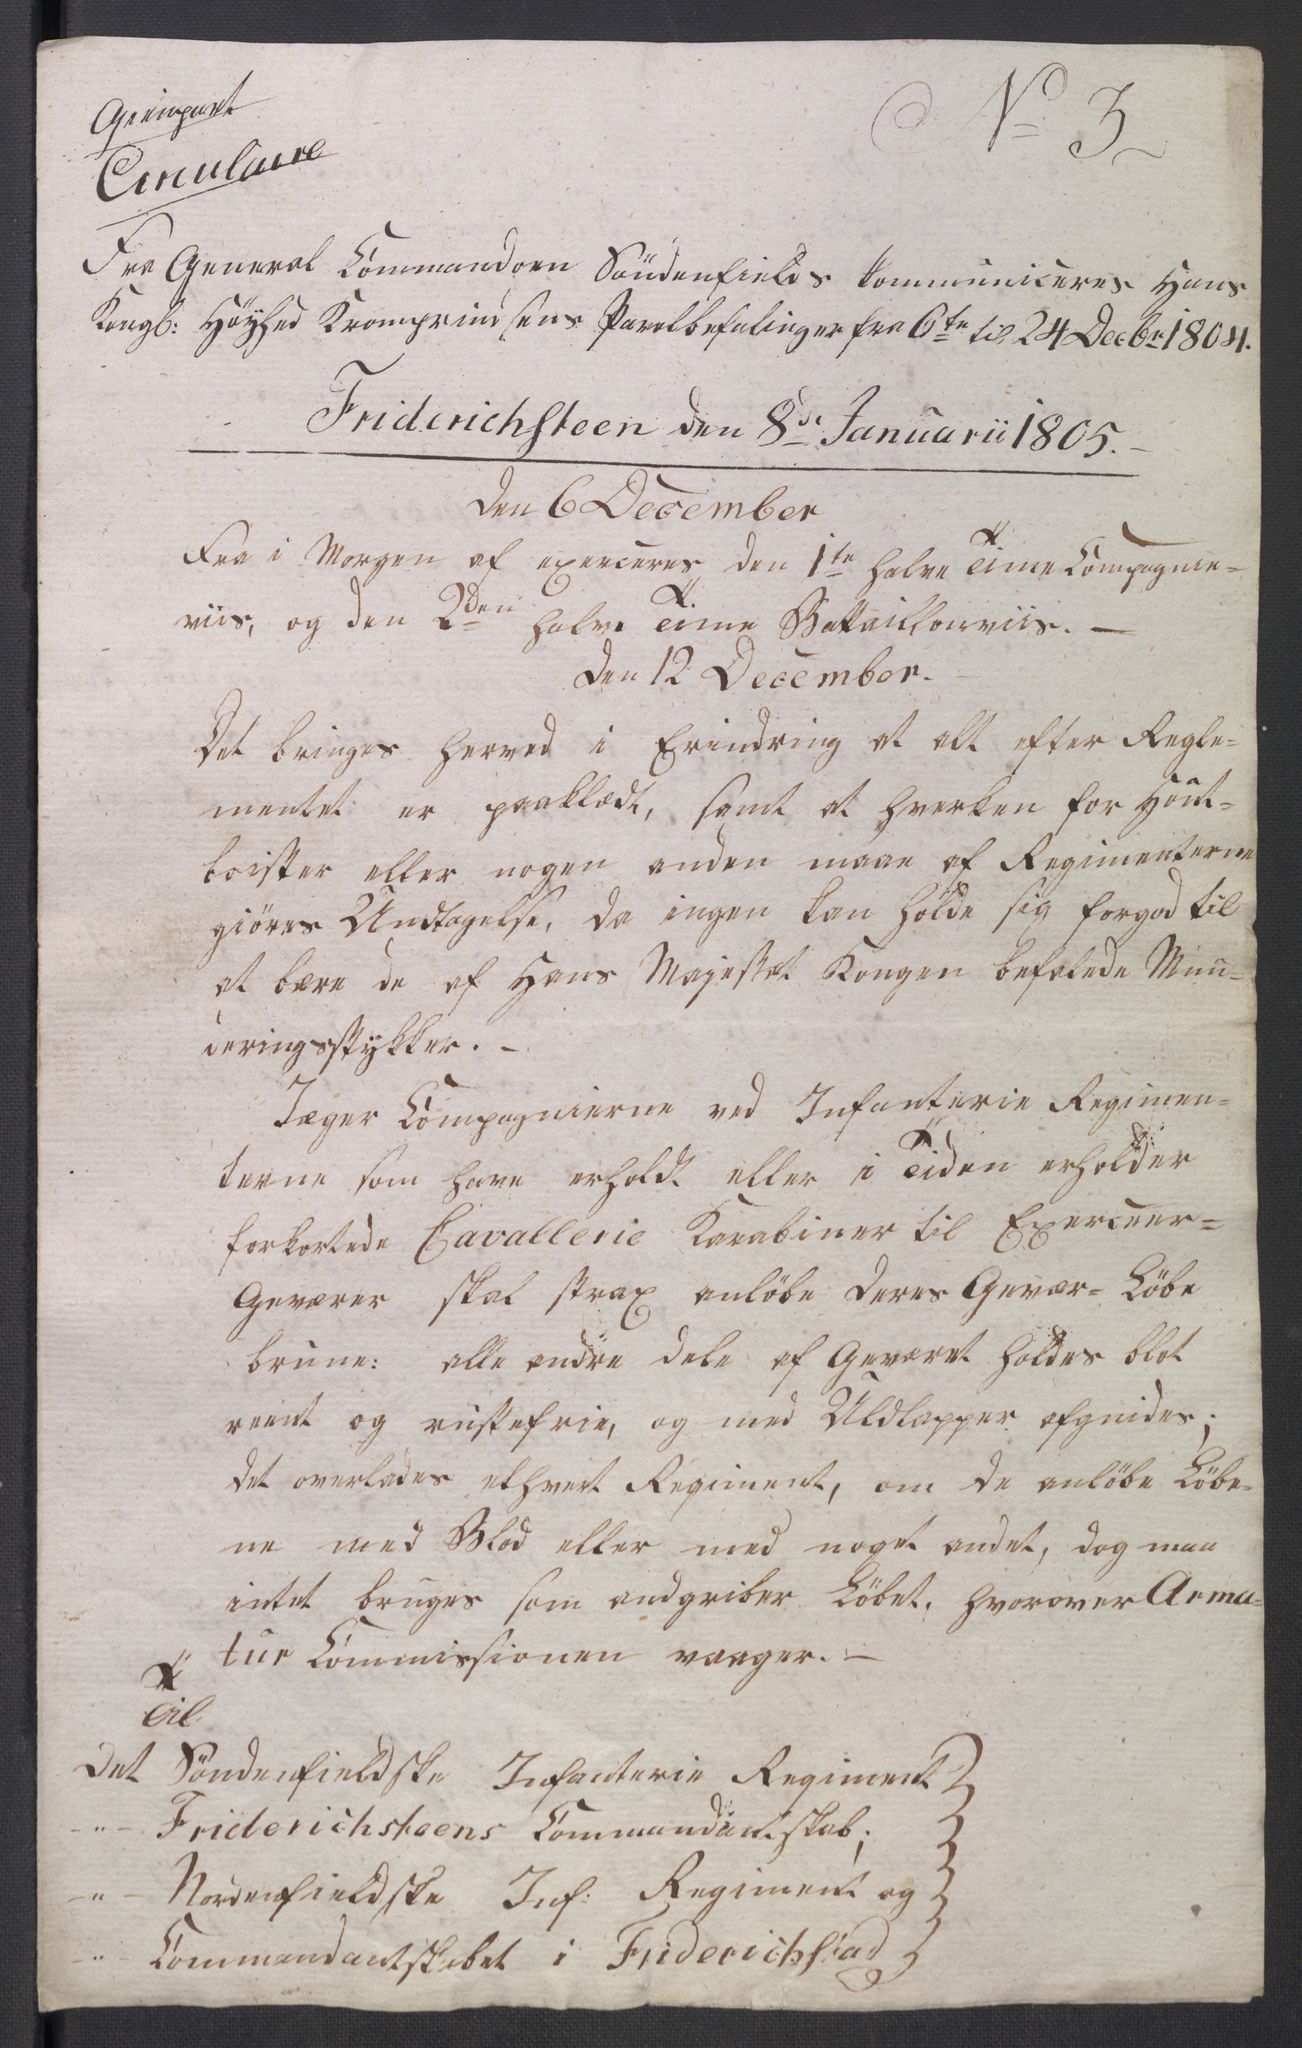 Gienpart
Circulaire
No 3
Fra General Commandoen Söndenfields kommuniceres Hans
Kongl: Höyhed Kronprindsens Parolbefalinger fra 6te til 24 Decbr 1804.
Friderichsteen den 8de Januarii 1805.
Den 6 December
Fra i Morgen af exerceres den 1te halve Time Compagnie-
viis, og den 2den halve Time Battaillonviis. –
Den 12 December.
Det bringes herved i Erindring at alt efter Regle-
mentet er paaklædt, samt at hverken for Haut-
boister eller nogen anden maae af Regimenterne
giöres Undtagelse, da ingen kan holde sig forgod til
at bære de af Hans Majestæt Kongen befalede Mun-
deringsstykker. –
Jæger Compagnierne ved Infanterie Regimen-
terne som have erholdt eller i Tiden erholder
forkortede Cavallerie Karabiner til Exerceer-
Geværer skal strax anlöbe deres Gevær-Löbe
brune: alle andre dele af Geværet holdes blot
reent og rustefrie, og med Uldlapper afgnides;
det overlades ethvert Regiment, om de anlöbe Löbe-
ne med Blod eller med noget andet, dog maa
intet bruges som andgriber Löbet, hvorover Arma-
tur Commissionen vaager. –
Til
Det Söndenfieldske Infanterie Regiment
-"- Friderichsteens Commandantskab,
-"- Nordenfieldske Inf: Regiment og
-"- Commandantskabet i Friderichstad